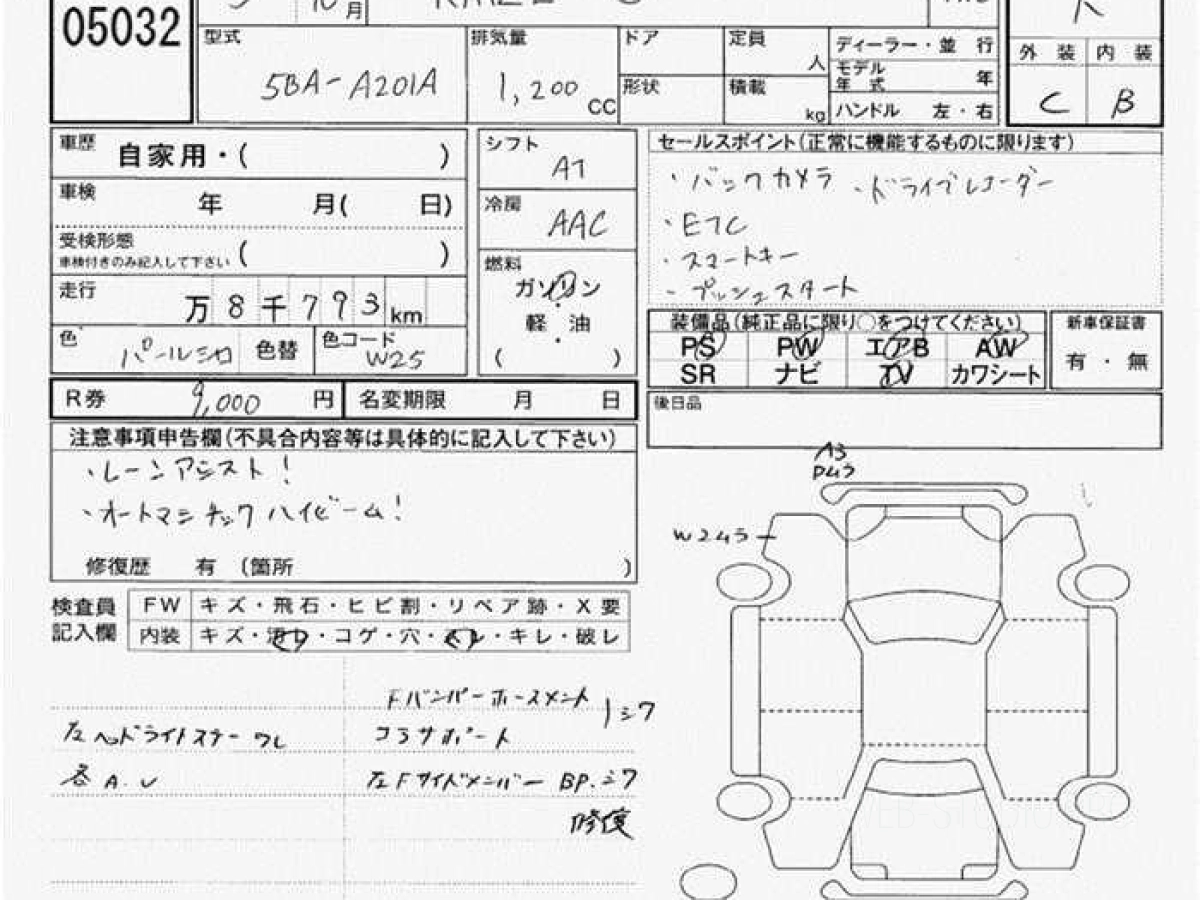 05032
月
型式
5BA-A201A
排気量
1,200
CC
ドア
形状
定員
人
積載
kg
ディーラー・並 行
モデル
年 式
年
ハンドル 左・右
外 装
内 装
C
B
車歴
自家用・( )
車検
年 月( 日)
受検形態
車検付きのみ記入して下さい
( )
走行
万 8 千 7 9 3 km
色
パールシロ
色替
色コード
W25
シフト
AT
冷房
AAC
燃料
ガソリン
・
軽 油
・
( )
セールスポイント(正常に機能するものに限ります)
・バックカメラ ・ドライブレコーダー
・ETC
・スマートキー
・プッシュスタート
装備品(純正品に限り○をつけてください)
PS PW エアB AW
SR ナビ TV カワシート
新車保証書
有 ・ 無
R券
9,000
円
名変期限
月 日
後日品
注意事項申告欄(不具合内容等は具体的に記入して下さい)
・レーンアシスト!
・オートマチックハイビーム!
修復歴 有 (箇所 )
検査員
記入欄
FW
キズ・飛石・ヒビ割・リペア跡・X要
内装
キズ・汚レ・コゲ・穴・スレ・キレ・破レ
左ヘッドライトステーワレ
各A.U
Fバンパーホースメント
コラサポート
シワ
左Fサイドメンバー BP.シワ
修復
A3
Pムラ
W2ムラ